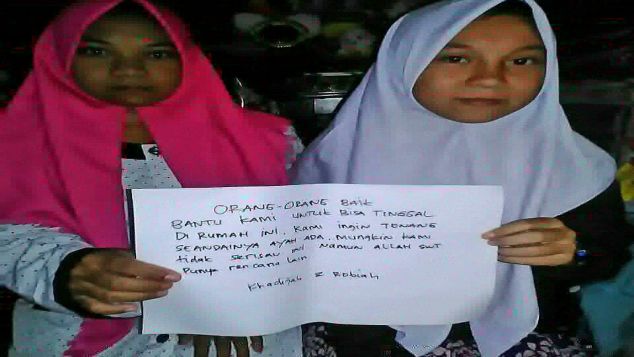 ORANG-ORANG BAIK
BANTU KAMI UNTUK BISA TINGGAL
DI RUMAH INI. KAMI INGIN TENANG
SEANDAINYA AYAH ADA. MUNGKIN KAMI
tidak SERISAU INI NAMUN ALLAH SWT
Punya rencana lain
Khadijah & Robiah